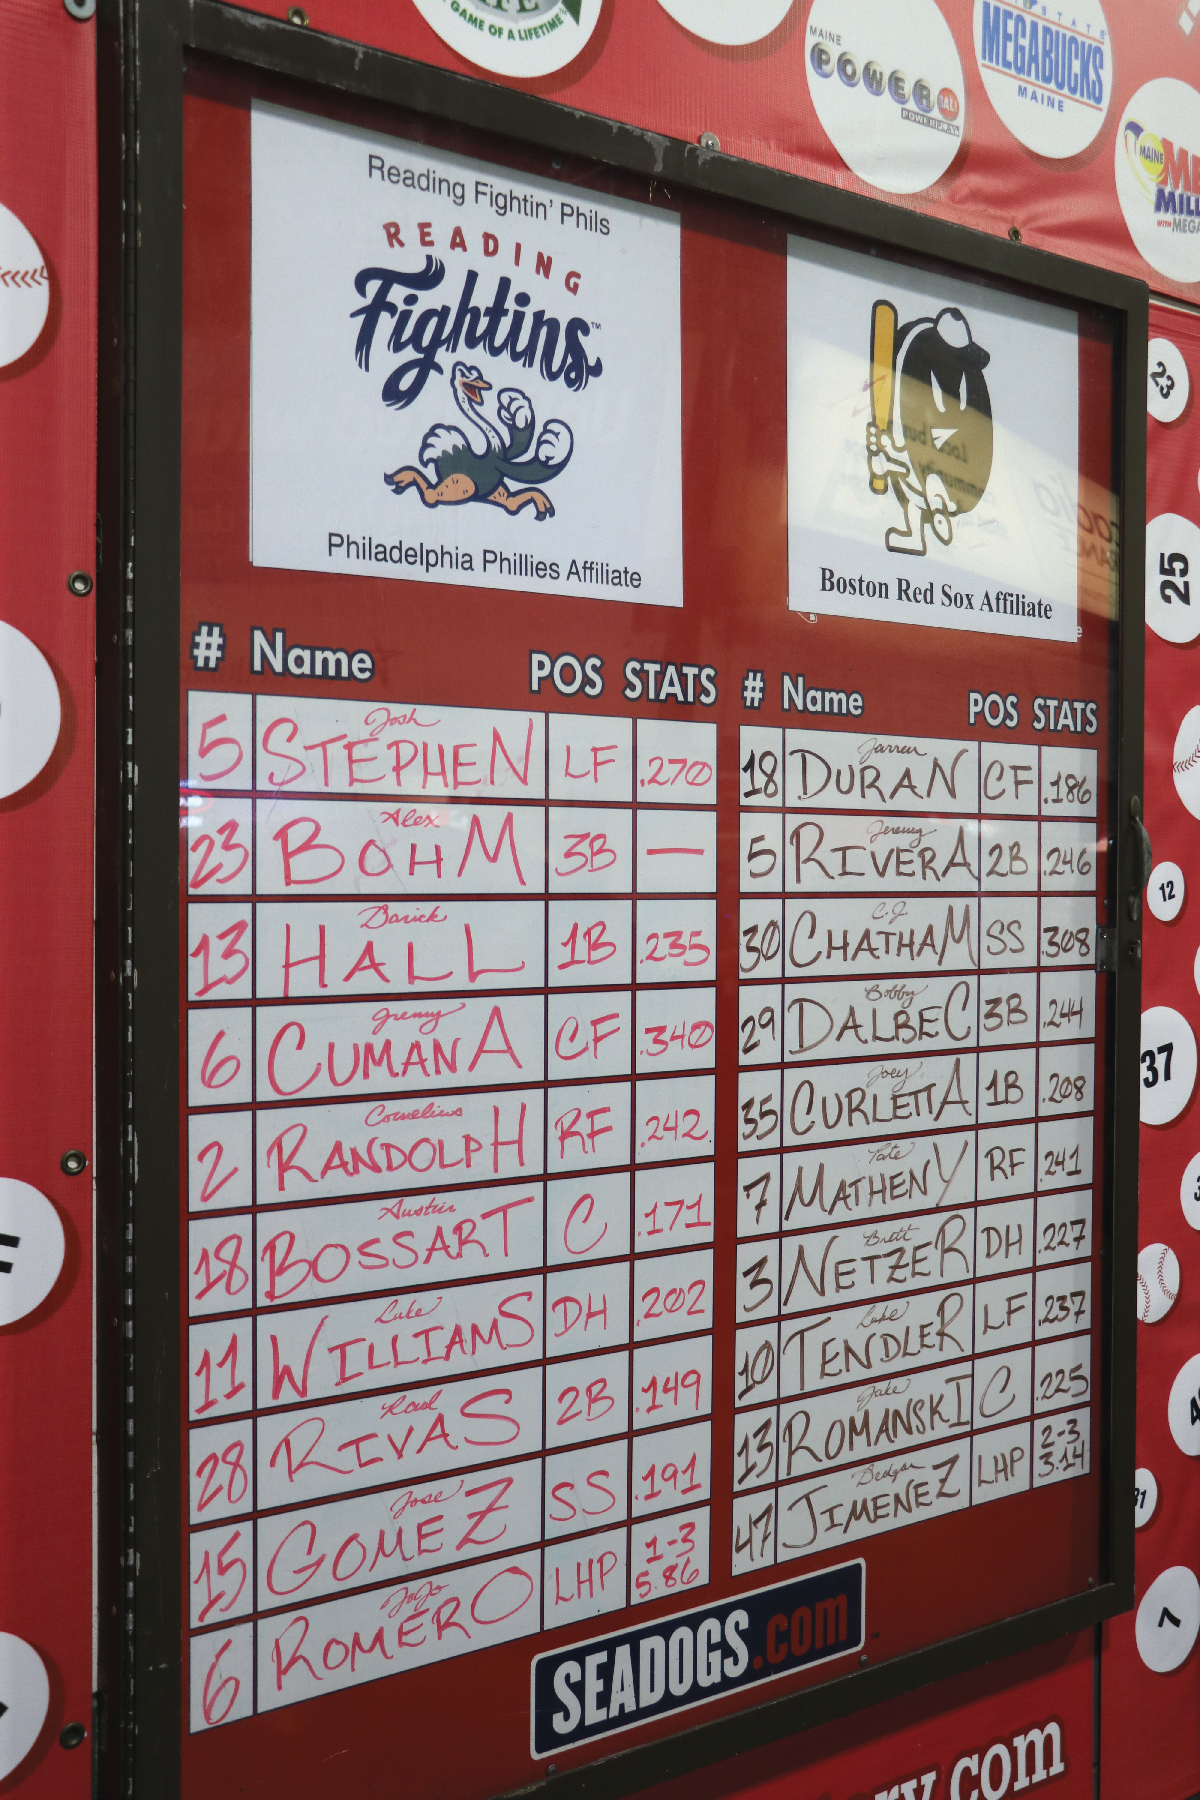 GAME OF A LIFETIME™
MAINE
POWERBALL
POWERPLAY
STATE
MEGABUCKS
MAINE
MAINE
ME
MILL
WITH MEGA
Reading Fightin' Phils
READING
Fightins™
Philadelphia Phillies Affiliate
Boston Red Sox Affiliate
# Name POS STATS
5 Josh STEPHEN LF .270
23 Alex BOHM 3B —
13 Darick HALL 1B .235
6 Jeremy CUMANA CF .340
2 Cornelius RANDOLPH RF .242
18 Austin BOSSART C .171
11 Luke WILLIAMS DH .202
28 Raul RIVAS 2B .149
15 Jose GOMEZ SS .191
6 JoJo ROMERO LHP 1-3 5.86
# Name POS STATS
18 Jarren DURAN CF .186
5 Jeremy RIVERA 2B .246
30 C.J. CHATHAM SS .308
29 Bobby DALBEC 3B .244
35 Joey CURLETTA 1B .208
7 Tate MATHENY RF .241
3 Brett NETZER DH .227
10 Luke TENDLER LF .237
13 Jake ROMANSKI C .225
47 Dedgar JIMENEZ LHP 2-3 3.14
SEADOGS.com
ry.com
23
25
12
37
31
7